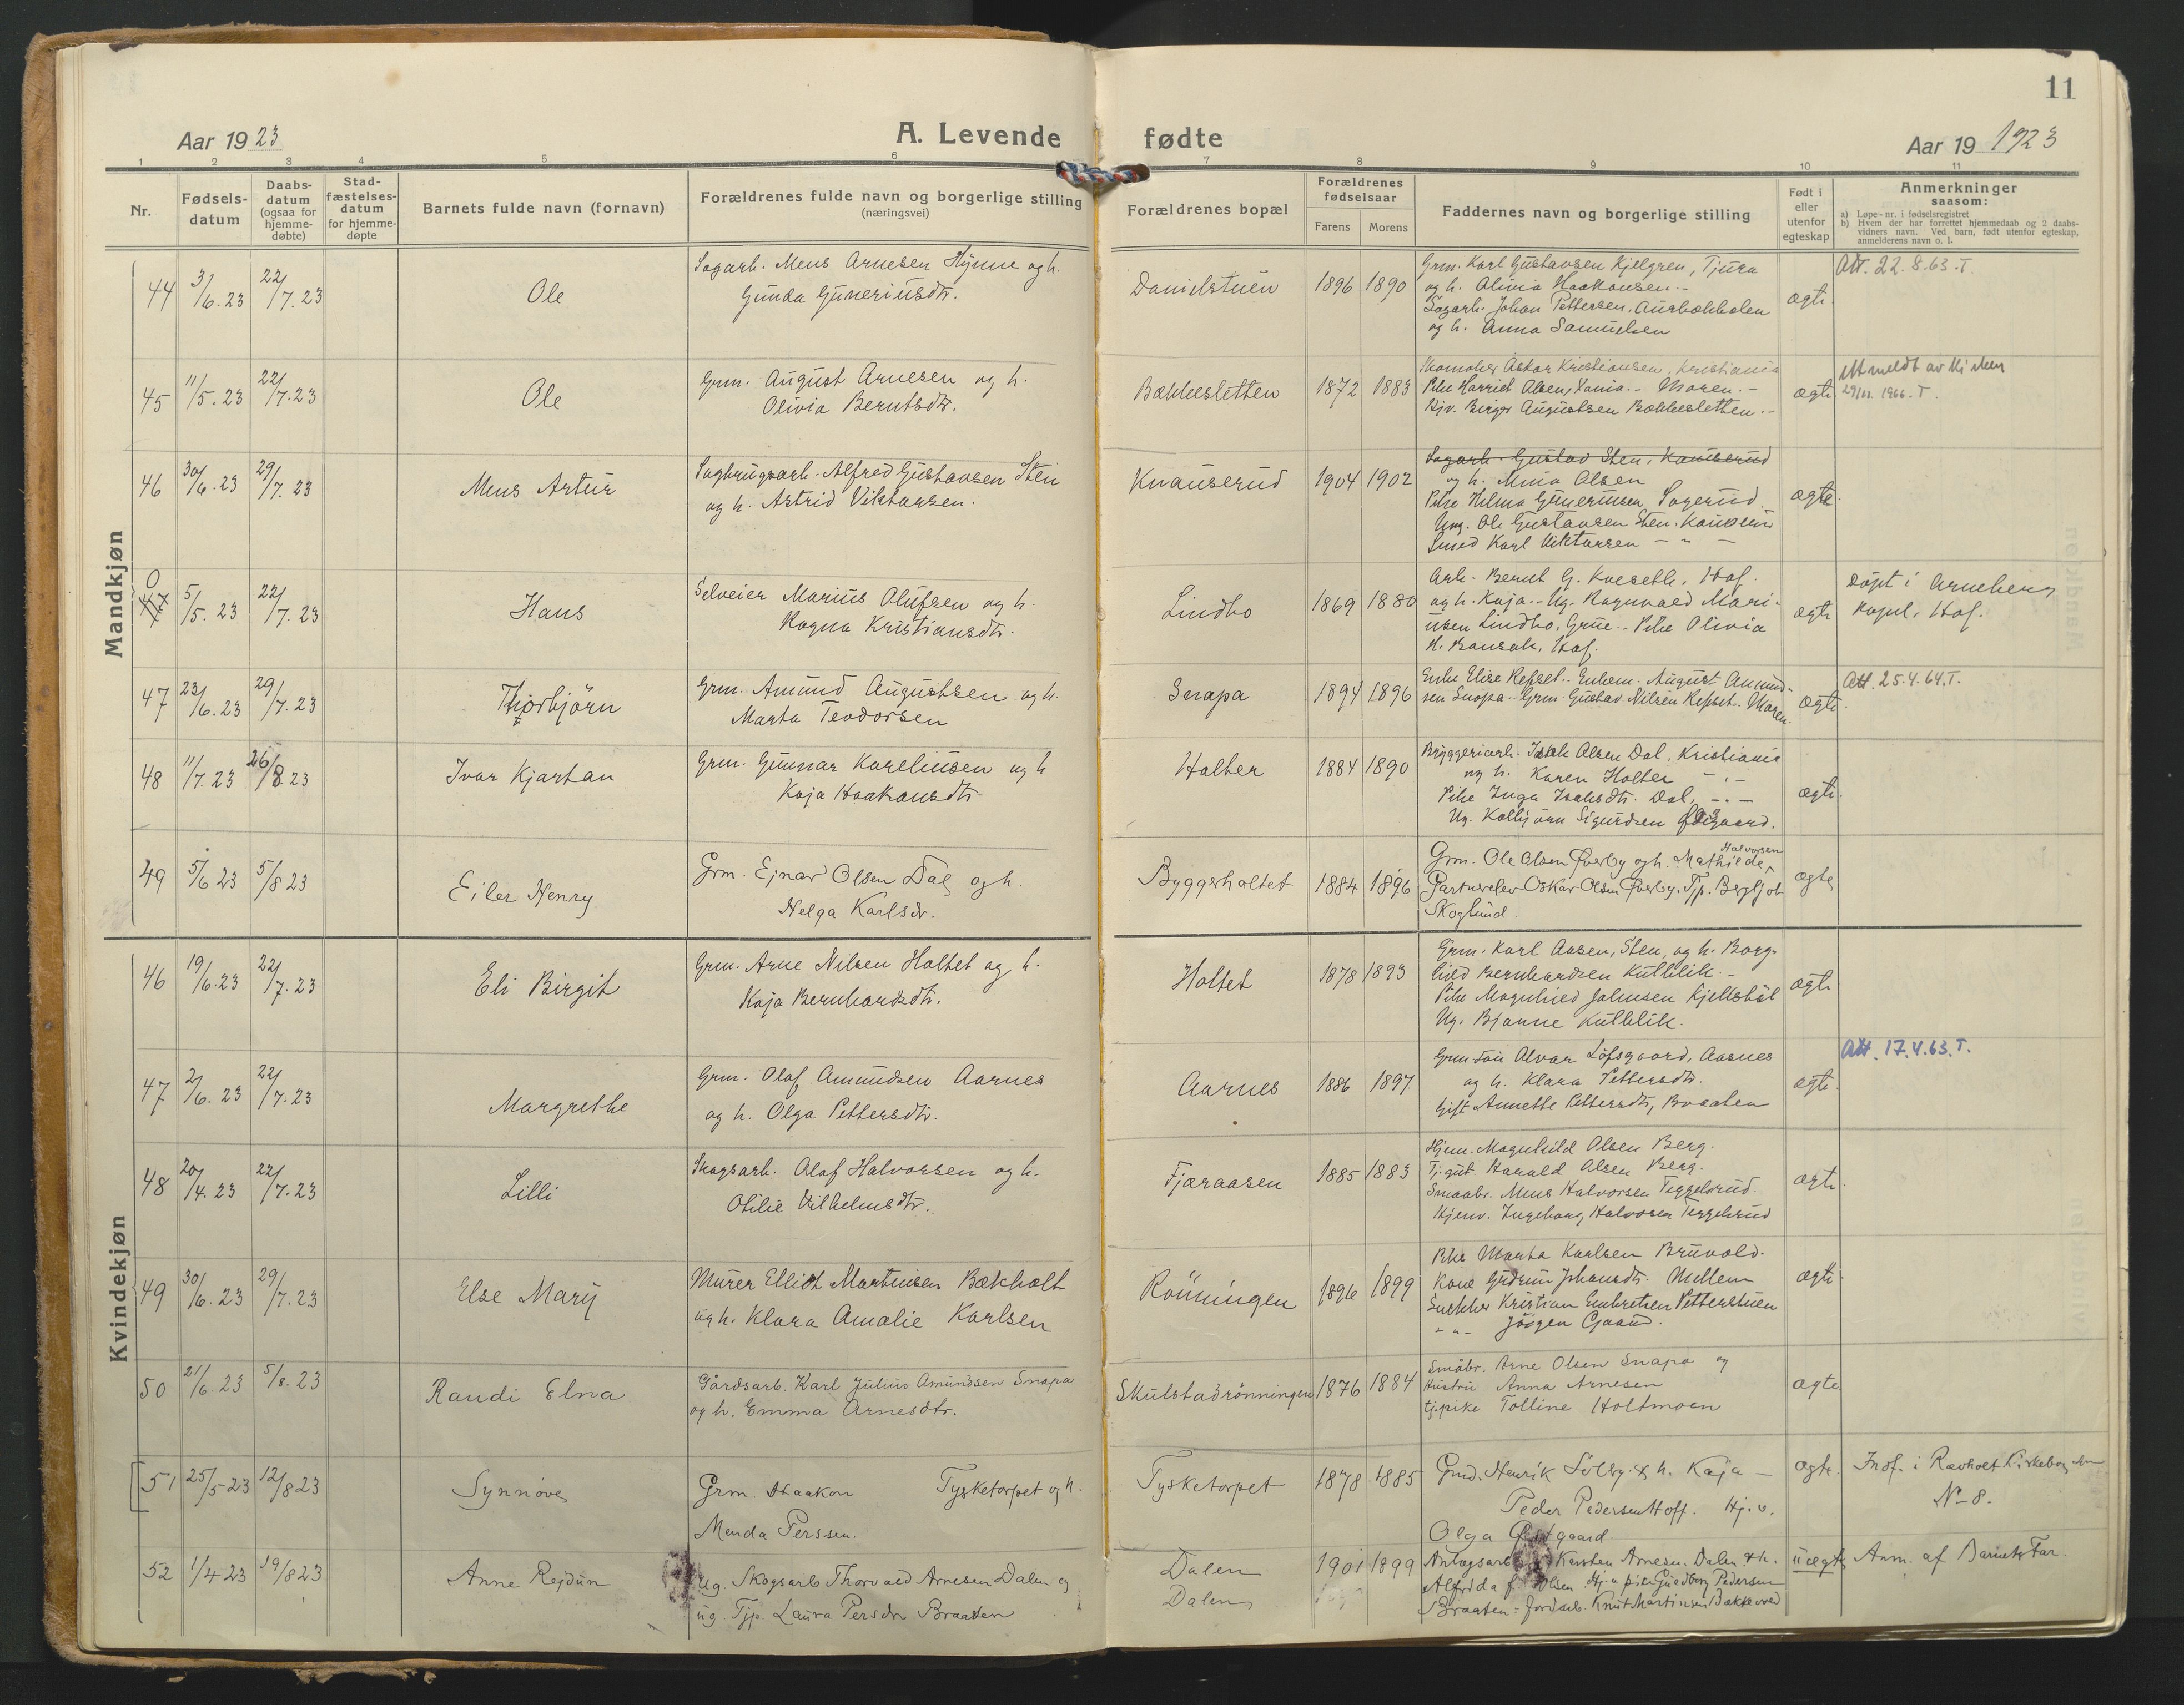 11
Aar 1923
A. Levende fødte
Aar 19 1923
1 2 3 4 5 6 7 8 9 10 11
Nr.
Fødsels-
datum
Daabs-
datum
(ogsaa for
hjemme-
døbte)
Stad-
fæstelses-
datum
for hjemme-
døpte
Barnets fulde navn (fornavn)
Forældrenes fulde navn og borgerlige stilling
(næringsvei)
Forældrenes bopæl
Forældrenes
fødselsaar
Farens Morens
Faddernes navn og borgerlige stilling
Født i
eller
utenfor
egteskap
Anmerkninger
saasom:
a) Løpe-nr. i fødselsregistret
b) Hvem der har forrettet hjemmedaab og 2 daabs-
vidners navn. Ved barn, født utenfor egteskap,
anmelderens navn o. l.
Mandkjøn
44 3/6.23 22/7.23
Ole
Sagarb. Mens Arnesen Hynne og h.
Gunda Guneriusdtr.
Danielstuen 1896 1890
Grm. Karl Gustavsen Kjelgren, Tjura
og h. Olivia Haakonsen.-
Sagarb. Johan Pettersen,
og h. Anna Samuelsen
ægte
Att. 22.8.63.T.
45 11/5.23 22/7.23
Ole
Grm. August Arnesen og h.
Olivia Berntsdtr.
Bækkesletten 1872 1883
Skomaker Askar Kristiansen, Kristiania
Pike Harriet Olsen, - Moren.-
Hjv. Birger Augustsen Bækkesletten.-
ægte
Utmeldt av
1966. T.
46 30/6.23 29/7.23
Mens Artur
Sagbrugsarb. Alfred Gustavsen Sten
og h. Astrid Viktorsen.
Knauserud 1904 1902
Sagarb. Gustav Sten, Knauserud
og h. Mina Olsen
Pike Helma Guneriusen Sagerud
Ung. Ole Gustavsen Sten.
Smed Karl Viktorsen - " -
ægte
0
47 5/5.23 22/7.23
Hans
Selveier Marius Olufsen og h.
Ragna Kristiansdtr.
Lindbo 1869 1880
Arb. Bernt G. Kveseth, Hof.
og h. Kaja.- Ug. Ragnvald Mari-
usen Lindbo, Grue.- Pike Olivia
K. Hof.
ægte
Døpt i Arneberg
kapel, Hof.
47 23/6.23 29/7.23
Thorbjörn
Grm. Amund Augustsen og h.
Marta Teodorsen
Snapa 1894 1896
Enke Elise Repset.- Enkem. August Amund-
sen Snapa.- Grm. Gustav Nilsen Repset. Moren.
ægte
Att. 25.4.64.T.
48 11/7.23 26/8.23
Ivar Kjartan
Grm. Gunnar Kareliusen og h
Kaja Haakonsdtr.
Holter 1884 1890
Bryggeriarb. Isak Olsen Dal, Kristiania
og h. Karen Holter - " -
Pike Inga Isaksdtr. Dal, - " -
Ug. Kolbjörn Sigurdsen
ægte
49 5/6 23 5/8 23
Eiler Henry
Grm. Ejnar Olsen Dal og h.
Helga Karlsdr.
Byggerholtet 1884 1896
Grm. Ole Olsen Øverby og h. Mathilde Halvorsen
Gartnerelev Oskar Olsen Øverby. Tjp. Bergljot
Skoglund
ægte
Kvindekjøn
46 19/6.23 22/7.23
Eli Birgit
Grm. Arne Nilsen Holtet og h.
Kaja Bernhardsdtr.
Holtet 1878 1893
Grm. Karl Aasen, Sten, og h. Borg-
hild Bernhardsen Kulblik.-
Pike Magnhild Johnsen
Ug. Bjarne Kulblik.
ægte
47 2/6.23 22/7.23
Margrethe
Grm. Olaf Amundsen Aarnes
og h. Olga Pettersdtr.
Aarnes 1886 1897
Alvar Löfsgaard, Aasnes
og h. Klara Pettersdtr.
Gift Annette Pettersdtr, Braaten
ægte
Att. 17.4.63.T.
48 20/4.23 22/7.23
Lilli
Skogsarb. Olaf Halvorsen og h.
Otilie Vilhelmsdtr.
Fjæraasen 1885 1883
Hjem. Magnhild Olsen Berg.
Tj.gut. Harald Olsen Berg.
Smaabr. Mens Halvorsen Teggelsrud.
Hjemv. Ingeborg Halvorsen Teggelsrud
ægte
49 30/6.23 29/7.23
Else Mary
Murer Elliot Martinisen Bækholt
og h. Klara Amalie Karlsen
Rönningen 1896 1899
Pike Marta Karlsen Bruvold.
Kone Gudrun Johansdtr. Mellem
Kristian Embretsen Petterstuen
" " - Jörgen
ægte
50 21/6.23 5/8.23
Randi Elna
Gårdsarb. Karl Julius Amundsen Snapa
og h. Emma Arnesdtr.
Skulstadrönningen 1876 1884
Småbr. Arne Olsen Snapa og
Hustru Anna Arnesen
tj.pike Tolline Holtmoen
ægte
51 25/5-23 12/8 23
Synnöve
Grm. Haakon Tysketorpet og h.
Menda Perssen.
Tysketorpet 1878 1885
Grmd. Henrik Solbg. & h. Kaja -
Peder Pedersen Hoff. Hj.v.
Olga
ægte
Indf. i Ravholt Kirkebog
N-8.
52 1/4 23 19/8 23
Anne Rejdun
ug. Skogsarb Thorvald Arnesen Dalen og
ug. Tjp. Laura Persdr Braaten
Dalen
Dalen
1901 1899
Anlægsarb Karsten Arnesen. Dalen & h.
Alfrida f. Olsen. Hj. v pike Guldborg Pedersen
Braaten = Jordarb. Knut Martinsen Bækkevold
uægte
Anm. af Barnets Far.